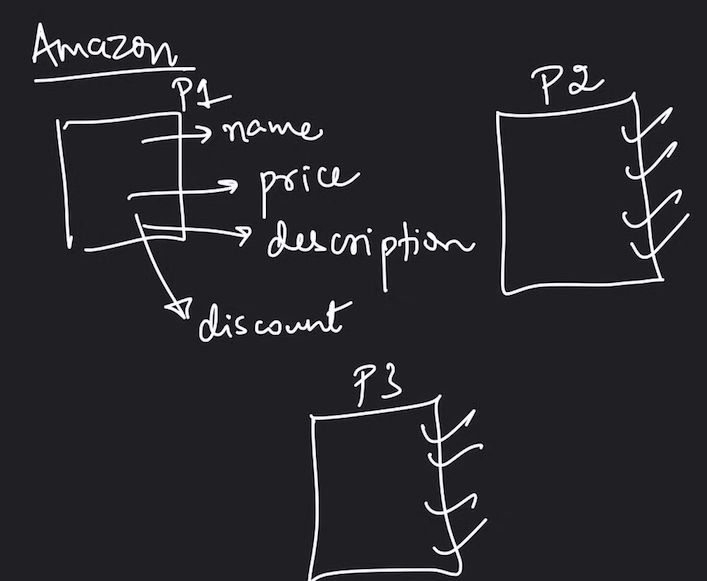 Amazon
P1
name
price
description
discount
P2
P3